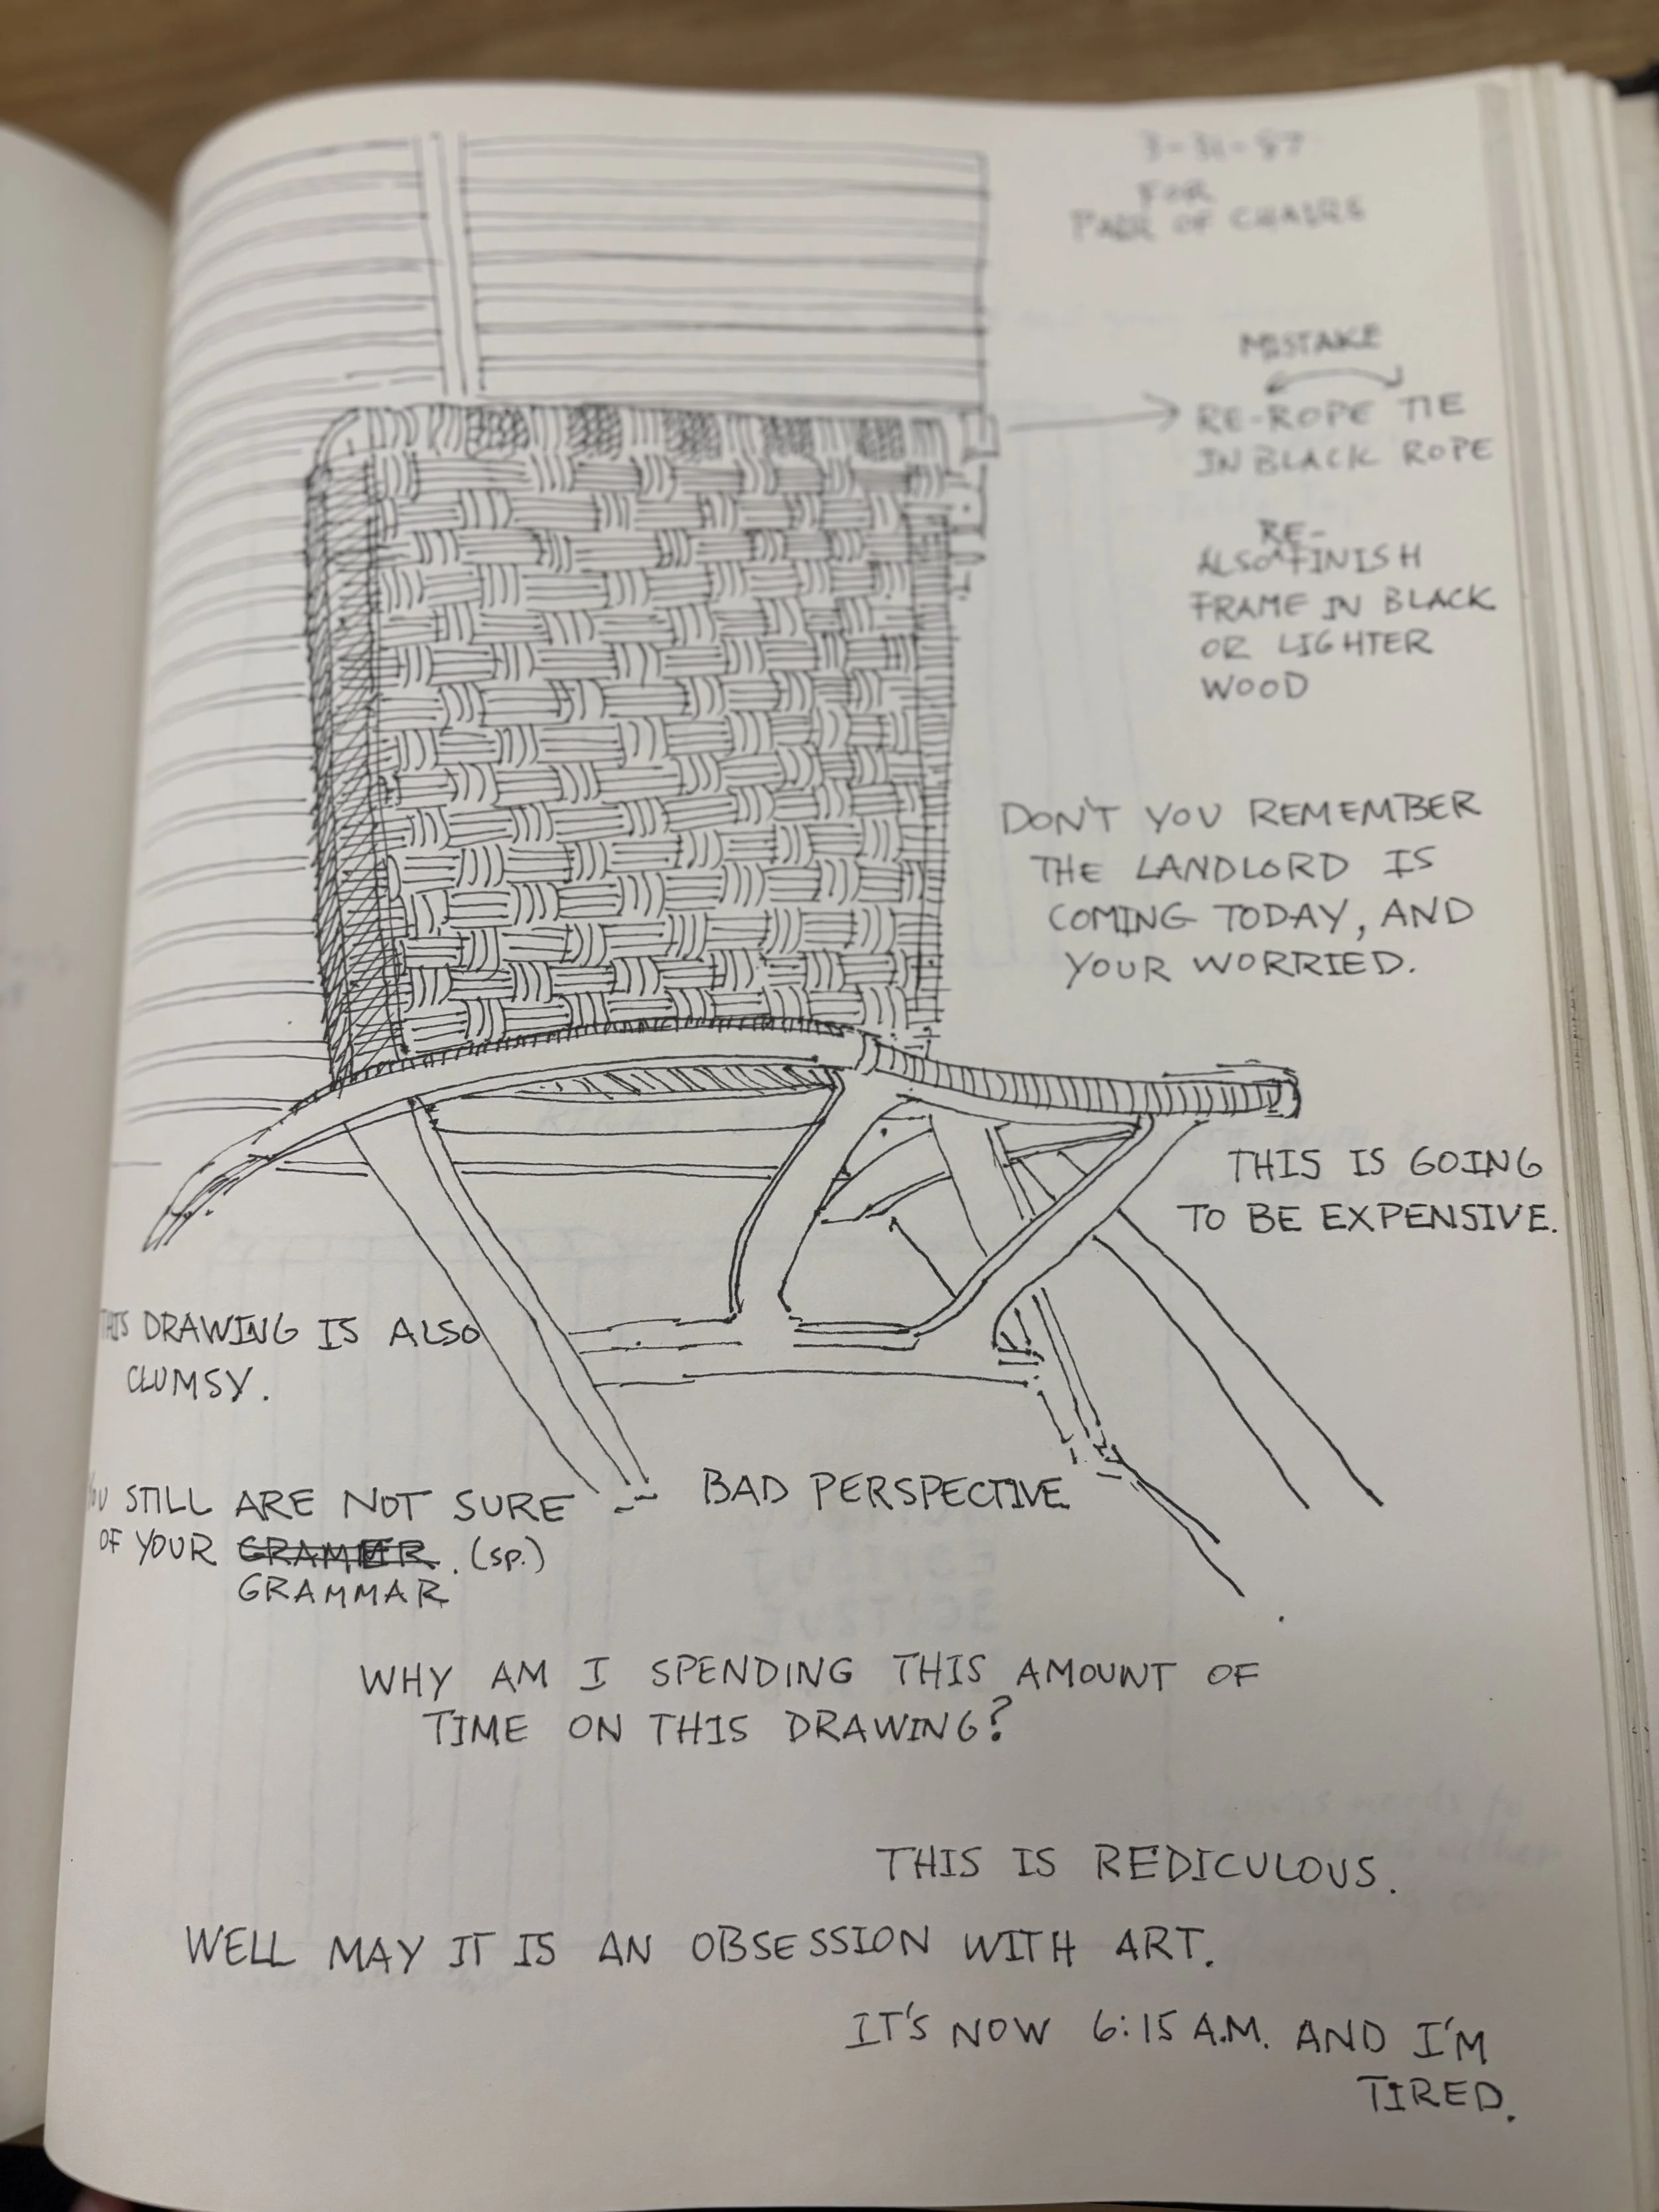 3-31-87
FOR
PAIR OF CHAIRS
MISTAKE
RE-ROPE TIE
IN BLACK ROPE
RE-
ALSO FINISH
FRAME IN BLACK
OR LIGHTER
WOOD
DON'T YOU REMEMBER
THE LANDLORD IS
COMING TODAY, AND
YOUR WORRIED.
THIS IS GOING
TO BE EXPENSIVE.
THIS DRAWING IS ALSO
CLUMSY.
YOU STILL ARE NOT SURE
OF YOUR GRAMMER. (SP.)
GRAMMAR
BAD PERSPECTIVE
WHY AM I SPENDING THIS AMOUNT OF
TIME ON THIS DRAWING?
THIS IS REDICULOUS.
WELL MAY IT IS AN OBSESSION WITH ART.
IT'S NOW 6:15 A.M. AND I'M
TIRED.